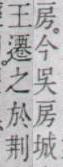 房。今吳房城
王遷之於荆